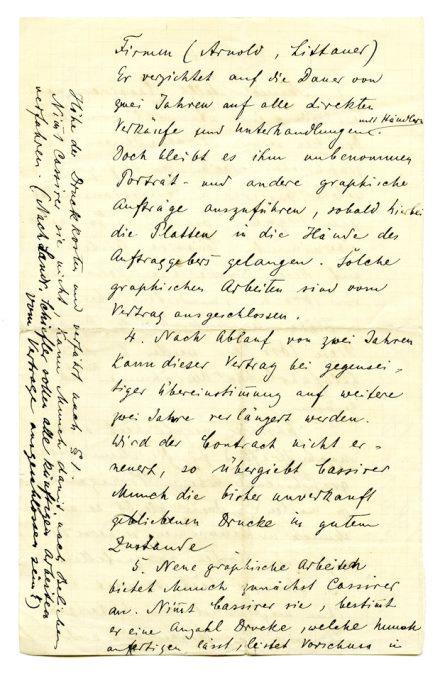 Firmen (Arnold, Littauer)
Er verzichtet auf die Dauer von
zwei Jahren auf alle direkten
Verkäufe und Unterhandlungen mit Händlern.
Doch bleibt es ihm unbenommen
Porträt- und andere graphische
Aufträge auszuführen, sobald hierbei
die Platten in die Hände des
Auftraggebers gelangen. Solche
graphischen Arbeiten sind vom
Vertrag ausgeschlossen.
4. Nach Ablauf von zwei Jahren
kann dieser Vertrag bei gegensei-
tiger Übereinstimmung auf weitere
zwei Jahre verlängert werden.
Wird der Contract nicht er-
neuert, so übergiebt Cassirer
Munch die bisher unverkauft
gebliebenen Drucke in gutem
Zustande
5. Neue graphische Arbeiten
bietet Munch zunächst Cassirer
an. Nimmt Cassirer sie, bestimmt
er eine Anzahl Drucke, welche Munch
anfertigen lässt, leistet Vorschuss in
Höhe der Druckkosten und verfährt nach § 1.
Nimmt Cassirer sie nicht, kann Munch damit nach Belieben
verfahren. (Nach Landr. Schiefler sollen alle künftigen Arbeiten
vom Vertrage ausgeschlossen sein!)